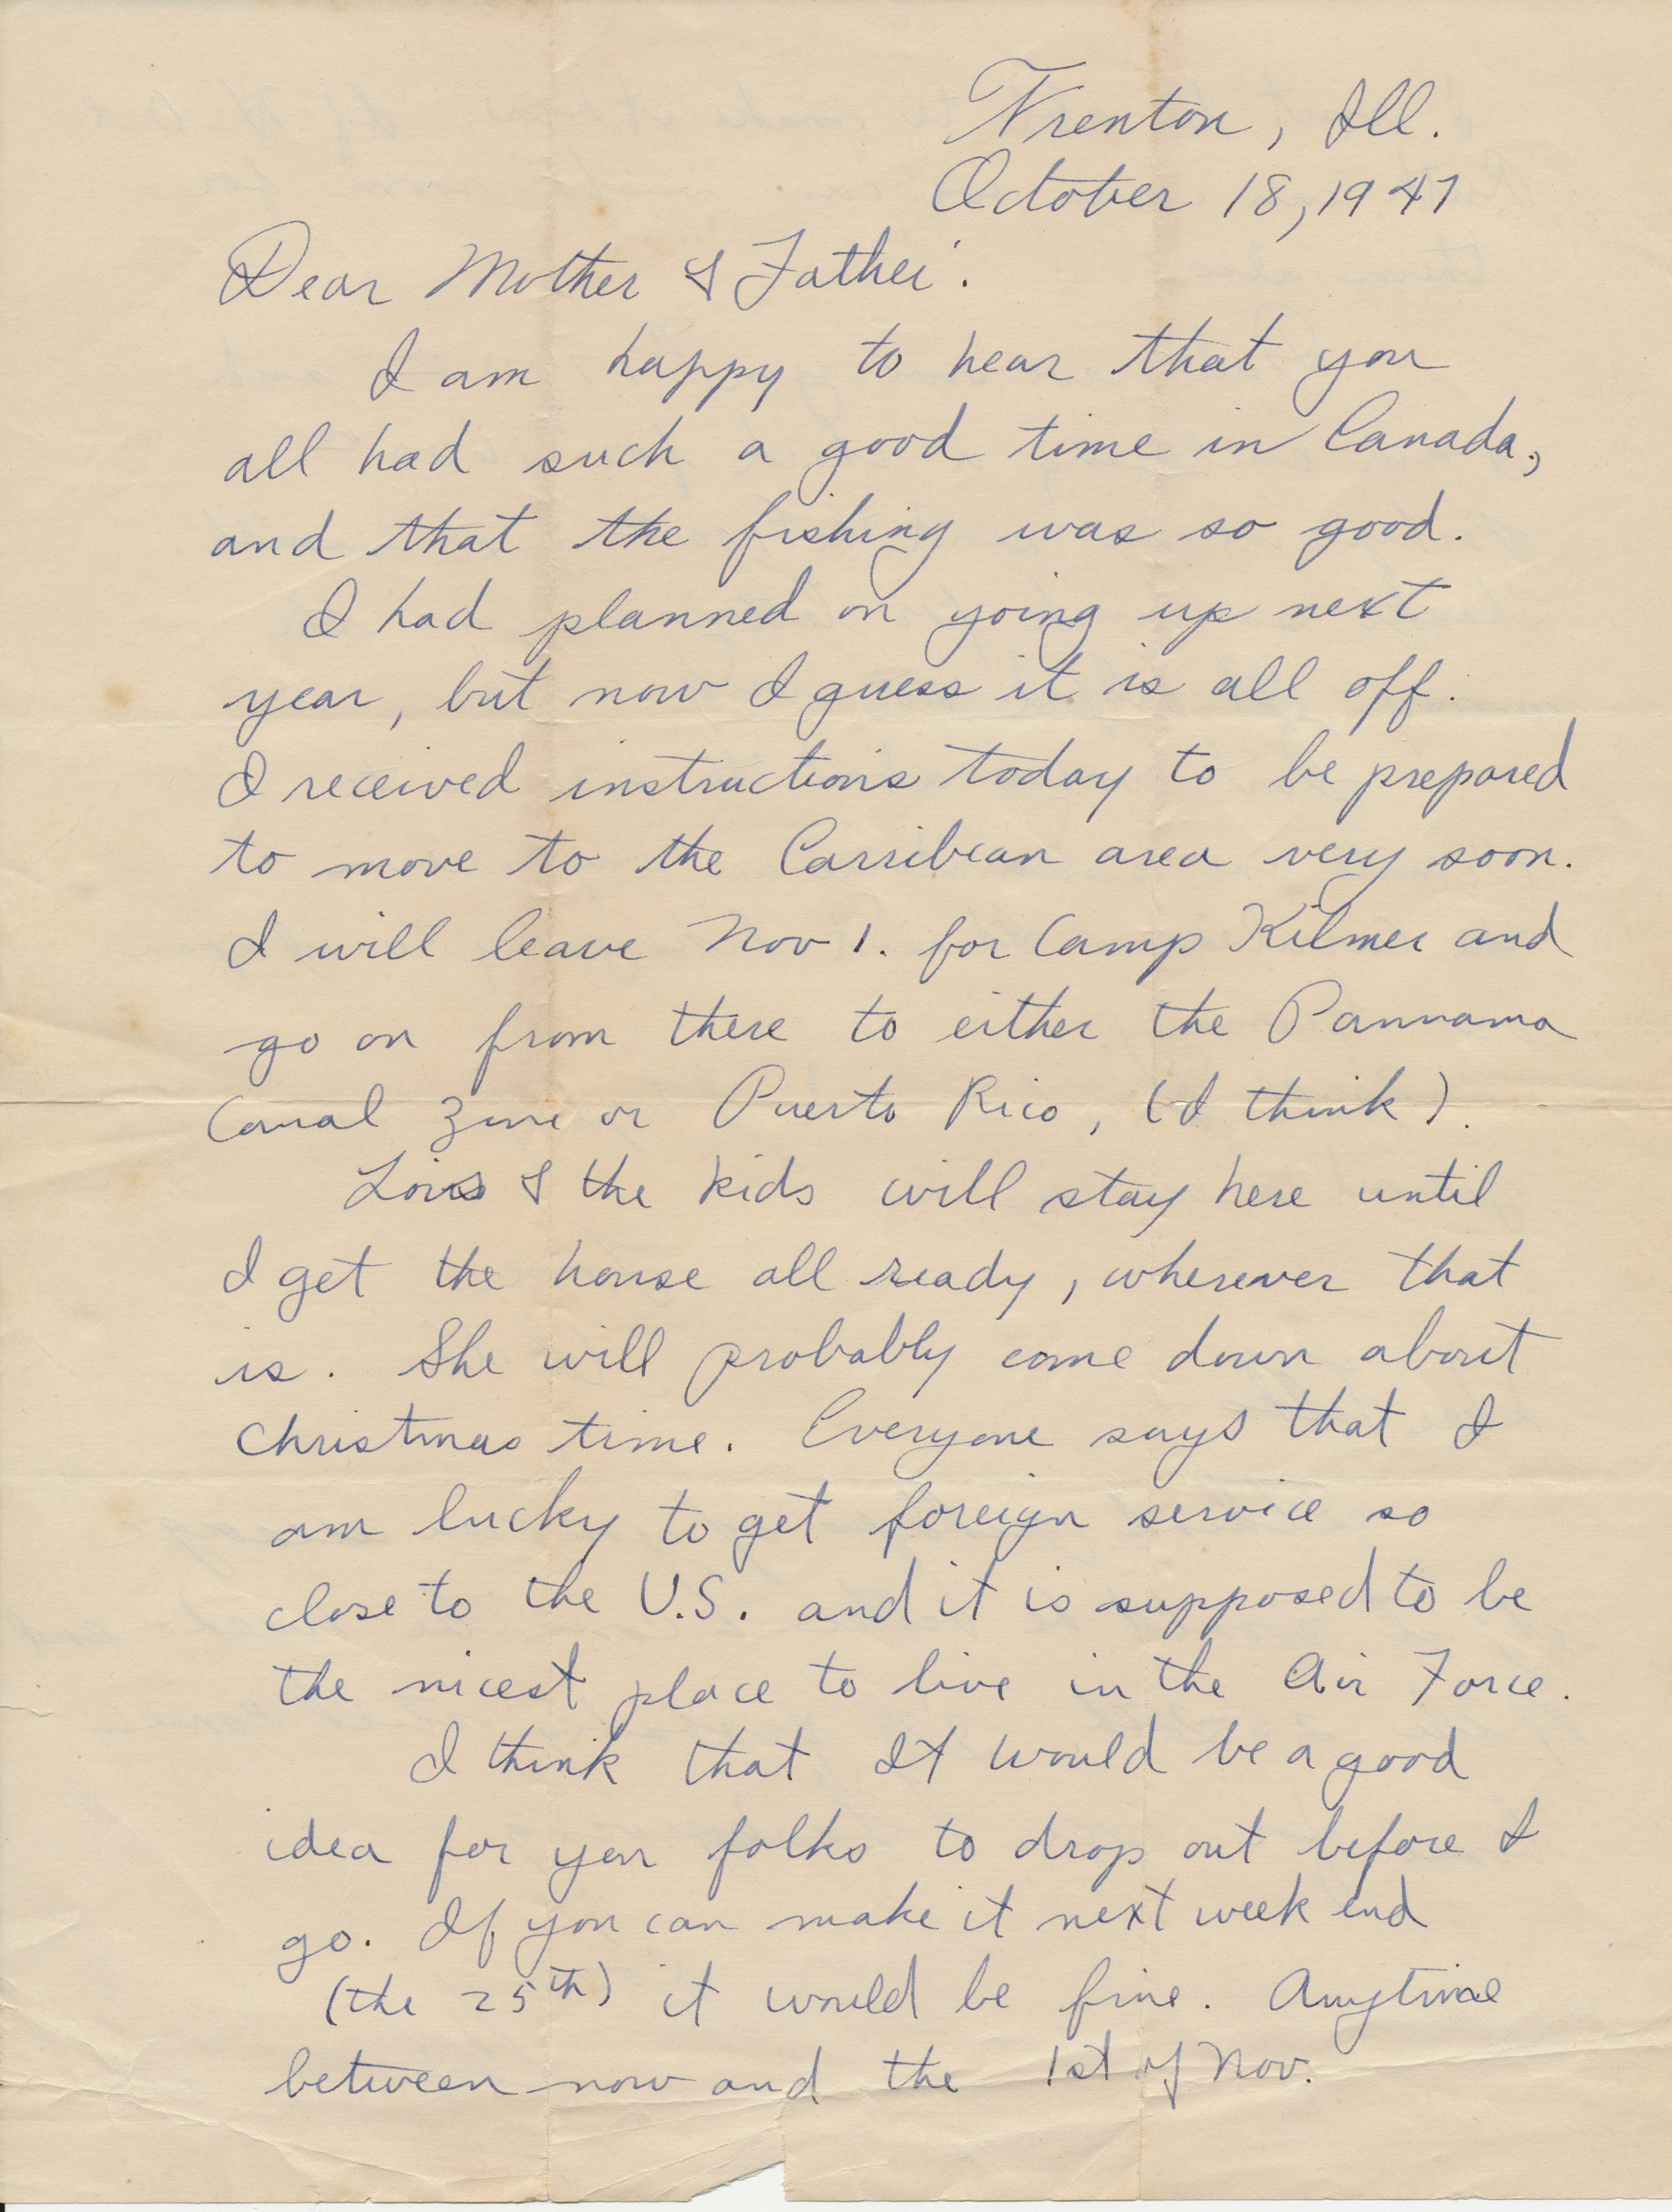 Trenton, Ill.
October 18, 1947
Dear Mother & Father:
I am happy to hear that you
all had such a good time in Canada,
and that the fishing was so good.
I had planned on going up next
year, but now I guess it is all off.
I received instructions today to be prepared
to move to the Carribean area very soon.
I will leave Nov 1. for Camp Kilmer and
go on from there to either the Pannama
Canal Zone or Puerto Rico, (I think).
Lois & the kids will stay here until
I get the house all ready, wherever that
is. She will probably come down about
Christmas time. Everyone says that I
am lucky to get foreign service so
close to the U.S. and it is supposed to be
the nicest place to live in the Air Force.
I think that It would be a good
idea for you folks to drop out before I
go. If you can make it next week end
(the 25th) it would be fine. Anytime
between now and the 1st of Nov.